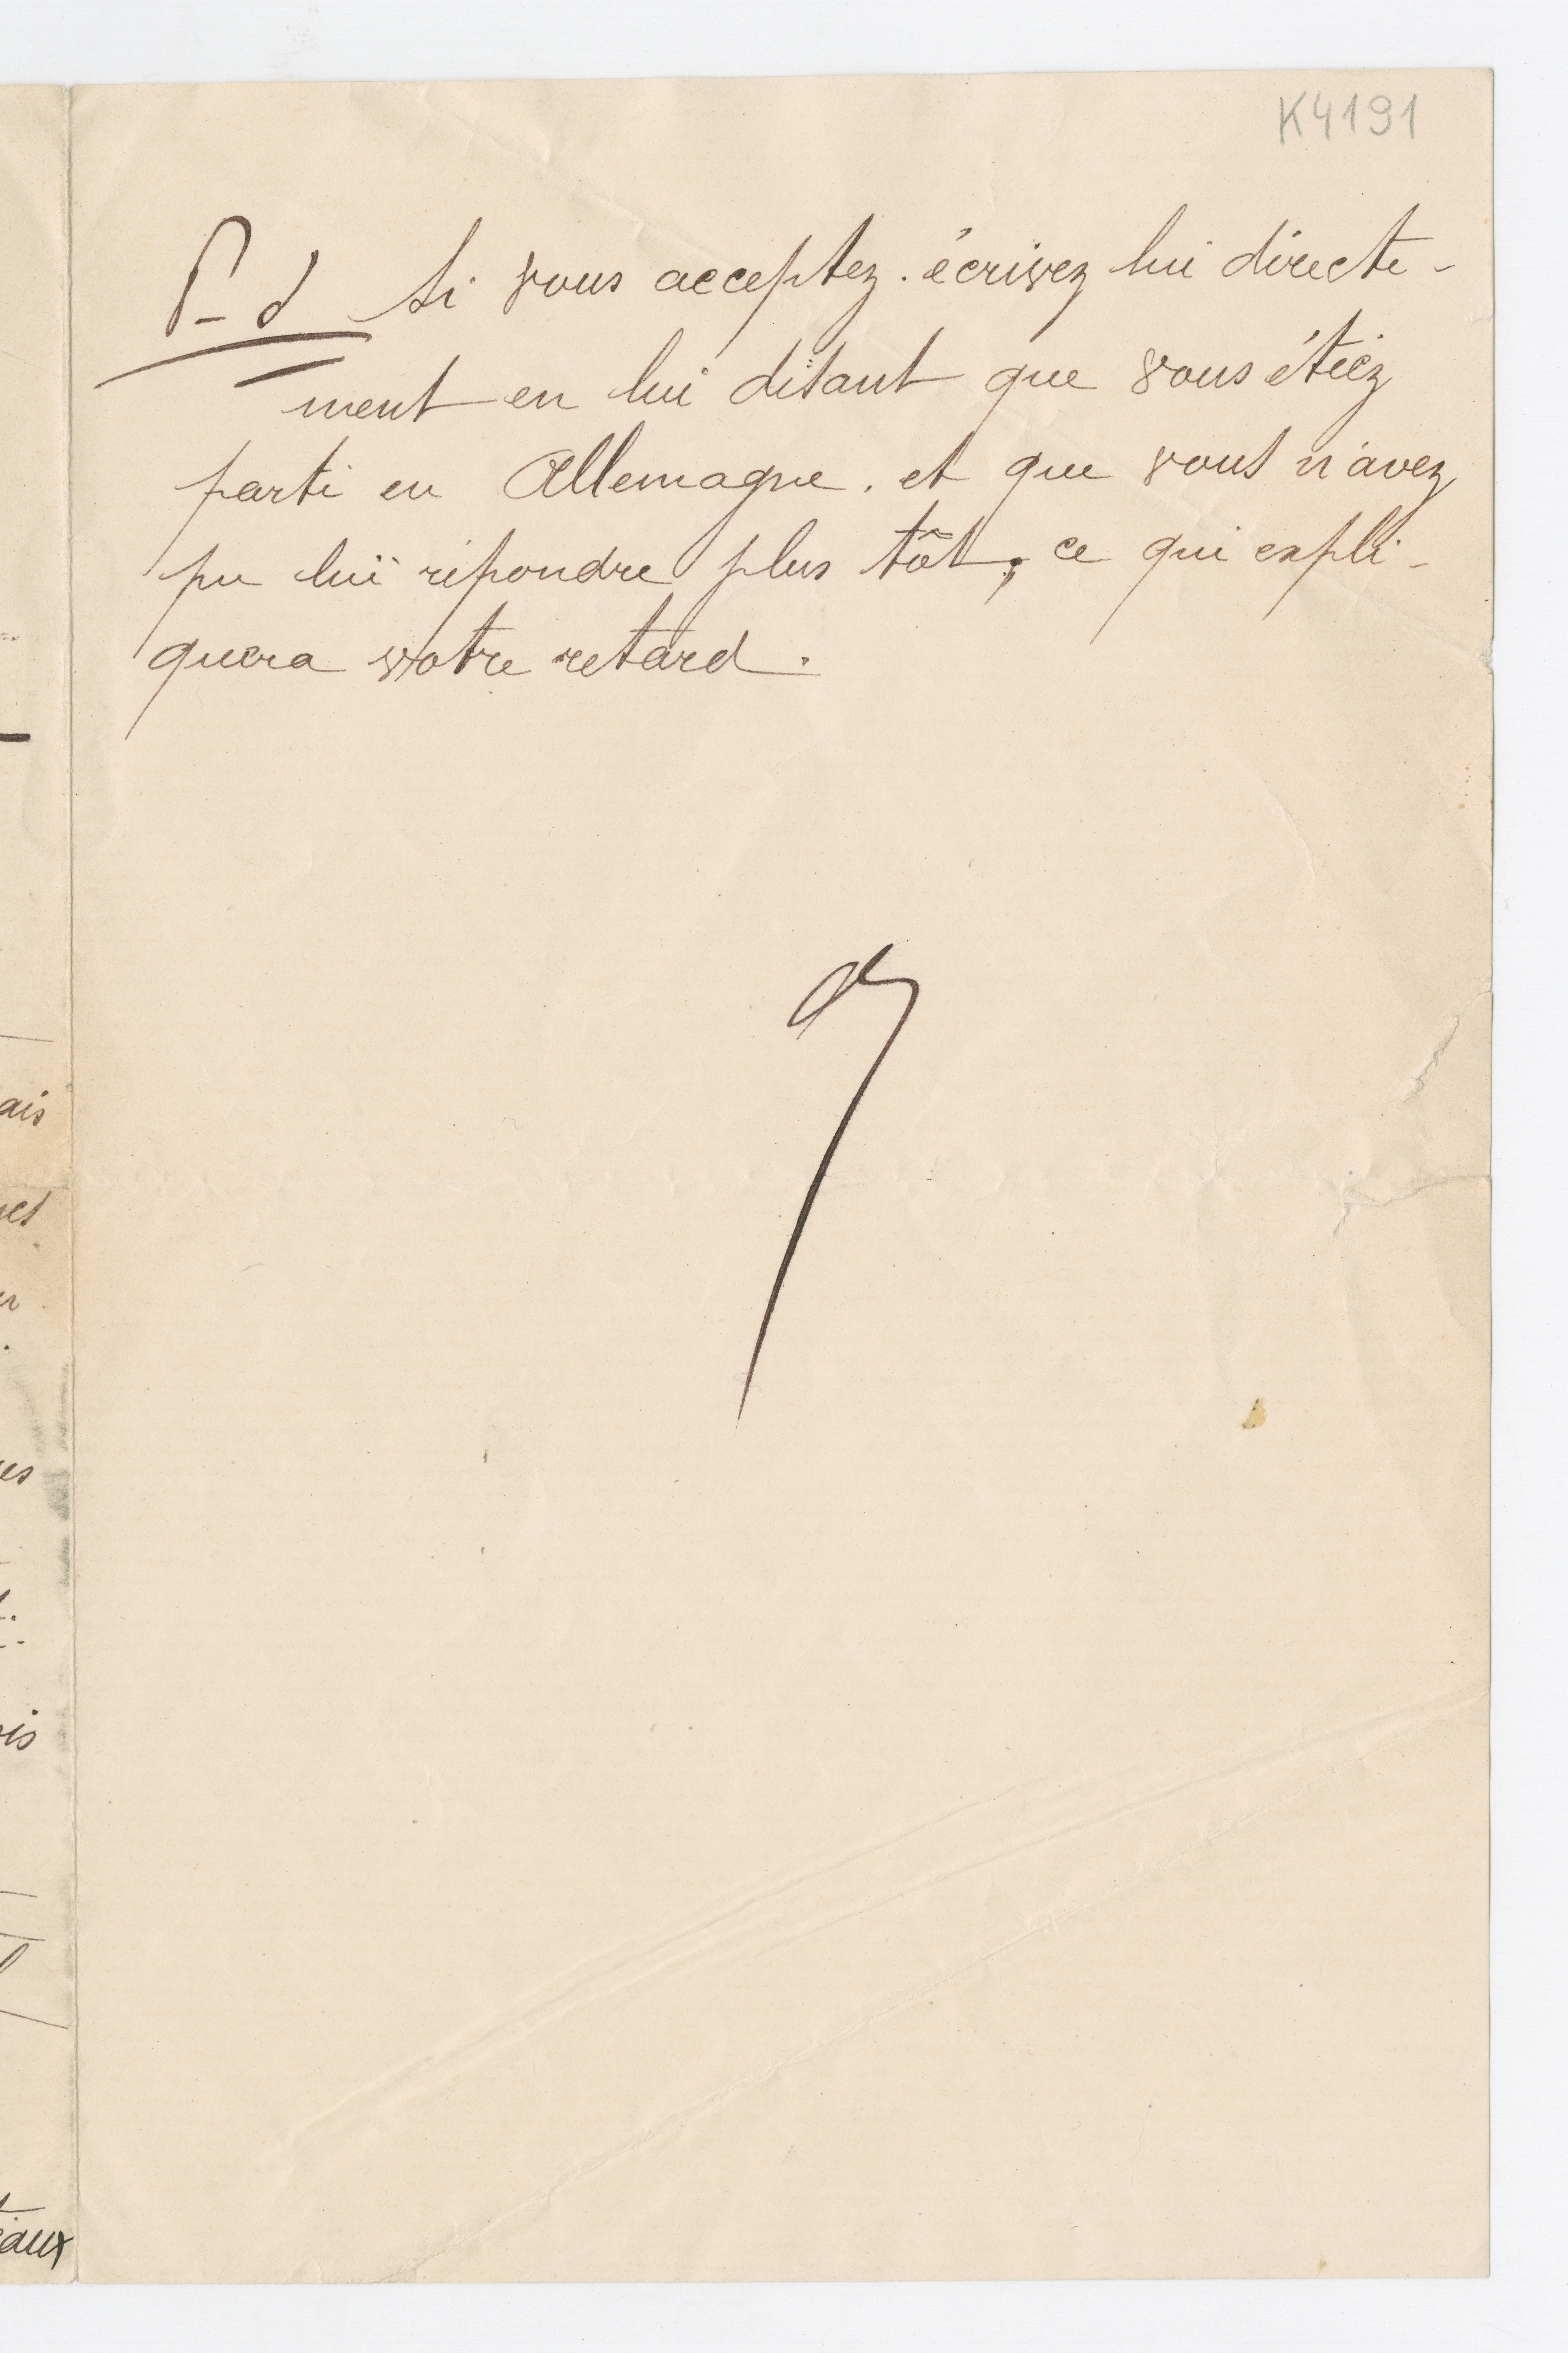 K4191
P-S Si vous acceptez. écrivez lui directe-
ment en lui disant que vous étiez
parti en Allemagne. et que vous n'avez
pu lui répondre plus tôt; ce qui expli-
quera votre retard.
ais
es
is
eaux